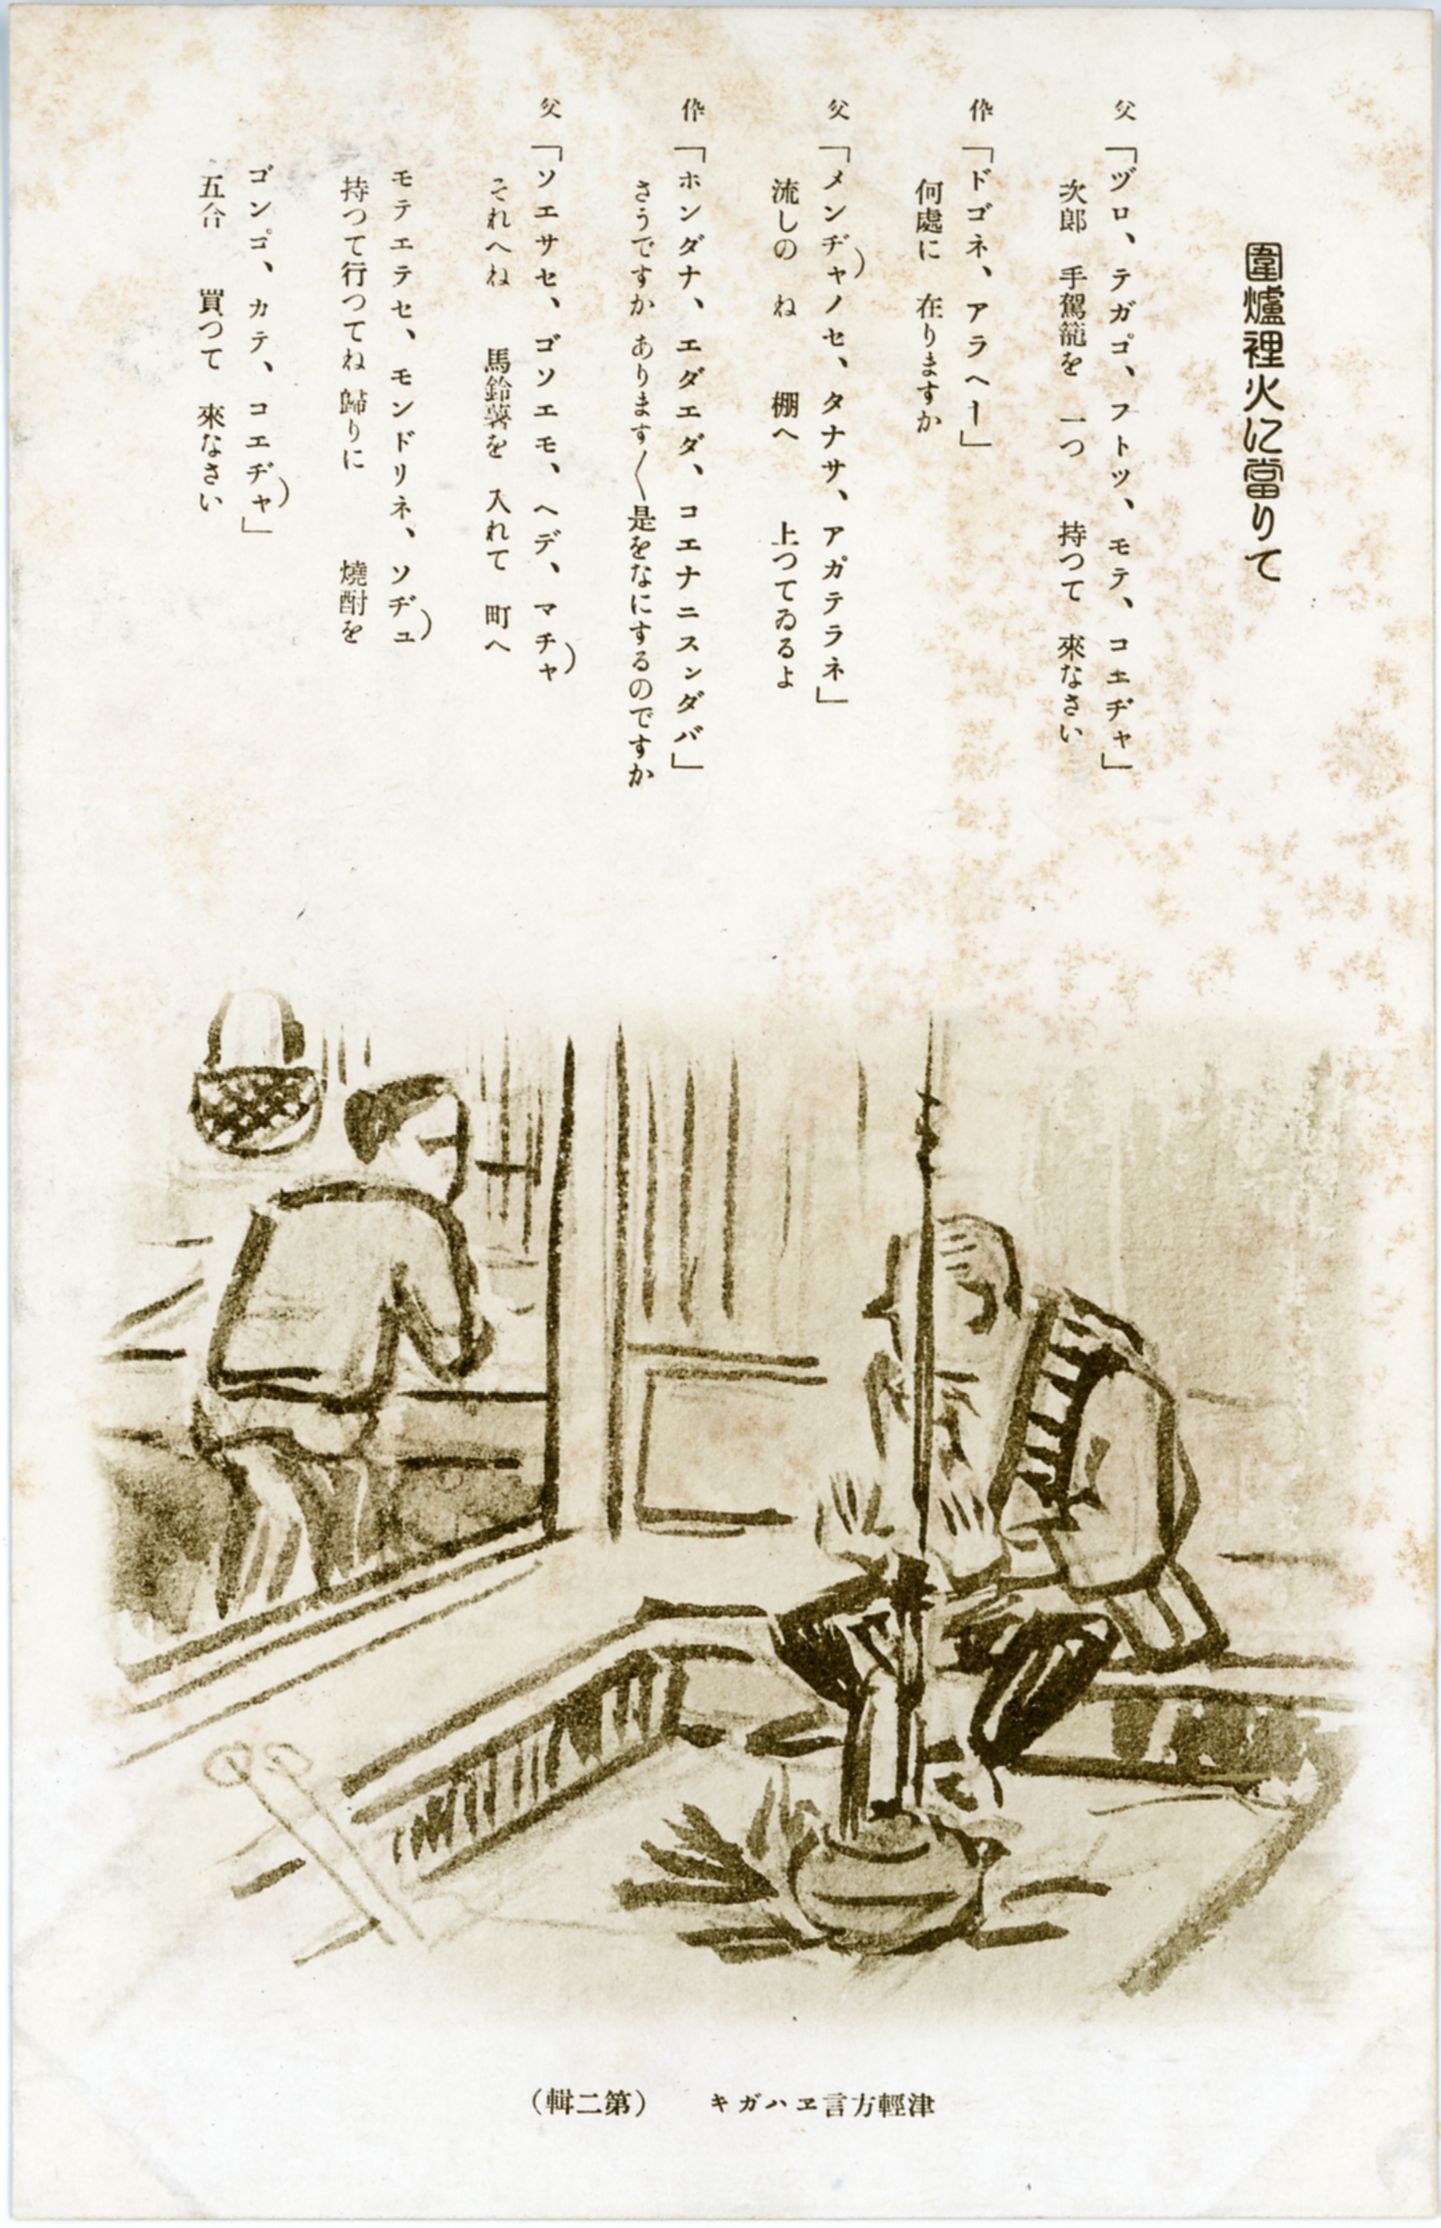 圍爐裡火に當りて
父「ヅロ、テガゴ、フトツ、モテ、コエヂャ」
次郎 手駕籠を 一つ 持つて 來なさい
伜「ドゴネ、アラヘー」
何處に 在りますか
父「メンヂャノセ、タナサ、アガテラネ」
流しの ね 棚へ 上つてゐるよ
伜「ホンダナ、エダエダ、コエナニスンダバ」
さうですか あります〱是をなにするのですか
父「ソエサセ、ゴソエモ、ヘデ、マチャ
それへね 馬鈴薯を 入れて 町へ
モテエテセ、モンドリネ、ソヂュ
持つて行つてね 歸りに 燒酎を
ゴンゴ、カテ、コエヂャ」
五合 買つて 來なさい
津輕方言ヱハガキ (第二輯)